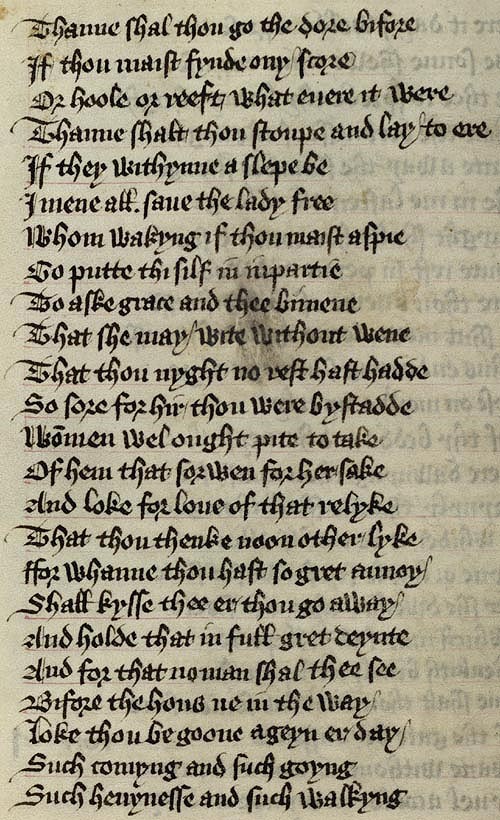 Thanne shal thou go the dore bifore
If thou maist fynde ony score
Or hoole or reeft what euere it were
Thanne shalt thou stoupe and lay to ere
If they withynne a slepe be
I mene all saue the lady free
Whom wakyng if thou maist aspie
Go putte thi silf in iupartie
To aske grace and thee bimene
That she may wite without wene
That thou nyght no rest hast hadde
So sore for hir thou were bystadde
Women wel ought pite to take
Of hem that sorwen for her sake
And loke for loue of that relyke
That thou thenke noon other lyke
ffor whanne thou hast so gret annoy
Shall kysse thee er thou go away
And holde that in full gret deynte
And for that no man shal thee see
Bifore the hous ne in the way
loke thou be goone ageyn er day
Such comyng and such goyng
Such heuynesse and such walkyng